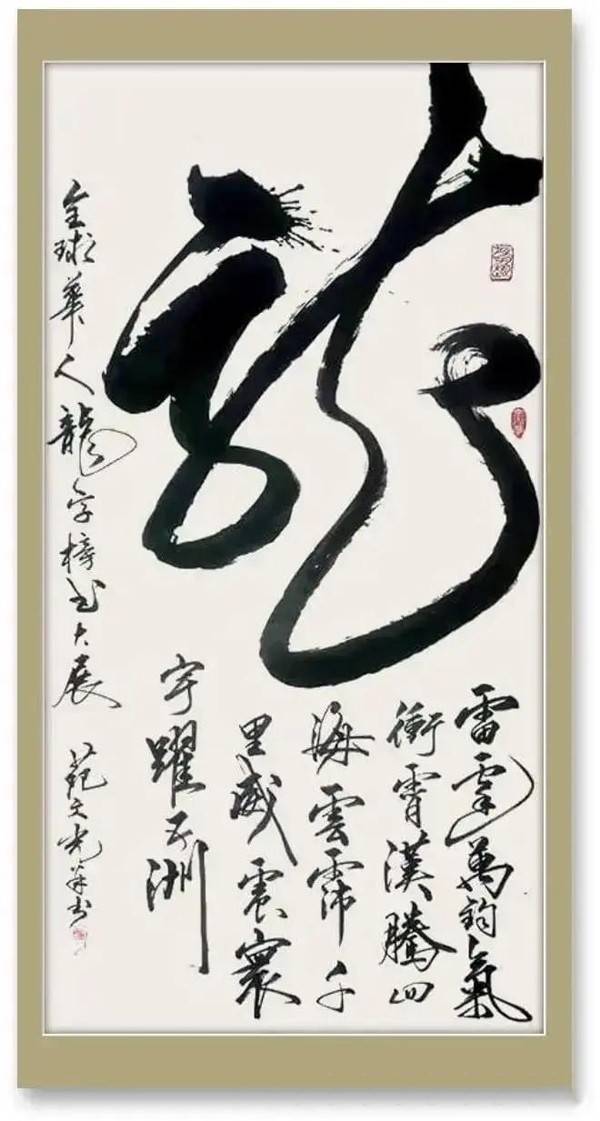 龍
雷霆萬鈞氣
衝霄漢騰四
海雲霈千
里威震寰
宇躍五洲
全球華人龍字榜书大展 范文光 书